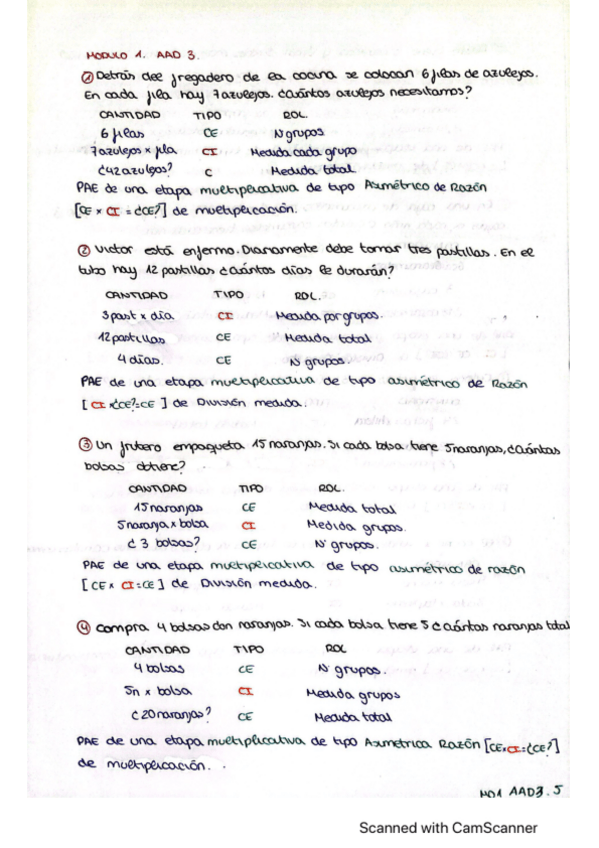 MODULO 1. AAD 3.
① Detrás del fregadero de la cocina se colocan 6 filas de azulejos.
En cada fila hay 7 azulejos. ¿Cuántos azulejos necesitamos?
CANTIDAD TIPO ROL.
6 filas CE Nº grupos
7 azulejos x fila CI Medida cada grupo
¿42 azulejos? C Medida total
PAE de una etapa multiplicativa de tipo Asimétrico de Razón
[CE x CI = ¿CE?] de multiplicación.
② Victor está enfermo. Diariamente debe tomar tres pastillas. En el
tubo hay 12 pastillas ¿Cuántos días le durarán?
CANTIDAD TIPO ROL.
3 past x día CI Medida por grupos.
12 pastillas CE Medida total
4 días. CE Nº grupos
PAE de una etapa multiplicativa de tipo asimétrico de Razón
[ CI x ¿CE? = CE ] de División medida.
③ Un frutero empaqueta 15 naranjas. Si cada bolsa tiene 5 naranjas, ¿Cuántas
bolsas obtiene?
CANTIDAD TIPO ROL.
15 naranjas CE Medida total
5 naranja x bolsa CI Medida grupos.
¿ 3 bolsas? CE Nº grupos.
PAE de una etapa multiplicativa de tipo asimétrico de razón
[ CE x CI = CE ] de División medida.
④ Compra 4 bolsas con naranjas. Si cada bolsa tiene 5 ¿Cuántas naranjas total
CANTIDAD TIPO ROL
4 bolsas CE Nº grupos.
5n x bolsa CI Medida grupos
¿ 20 naranjas? CE Medida total
PAE de una etapa multiplicativa de tipo Asimetrica Razón [CE x CI = ¿CE?]
de multiplicación.
MD1 AAD3. 5
Scanned with CamScanner